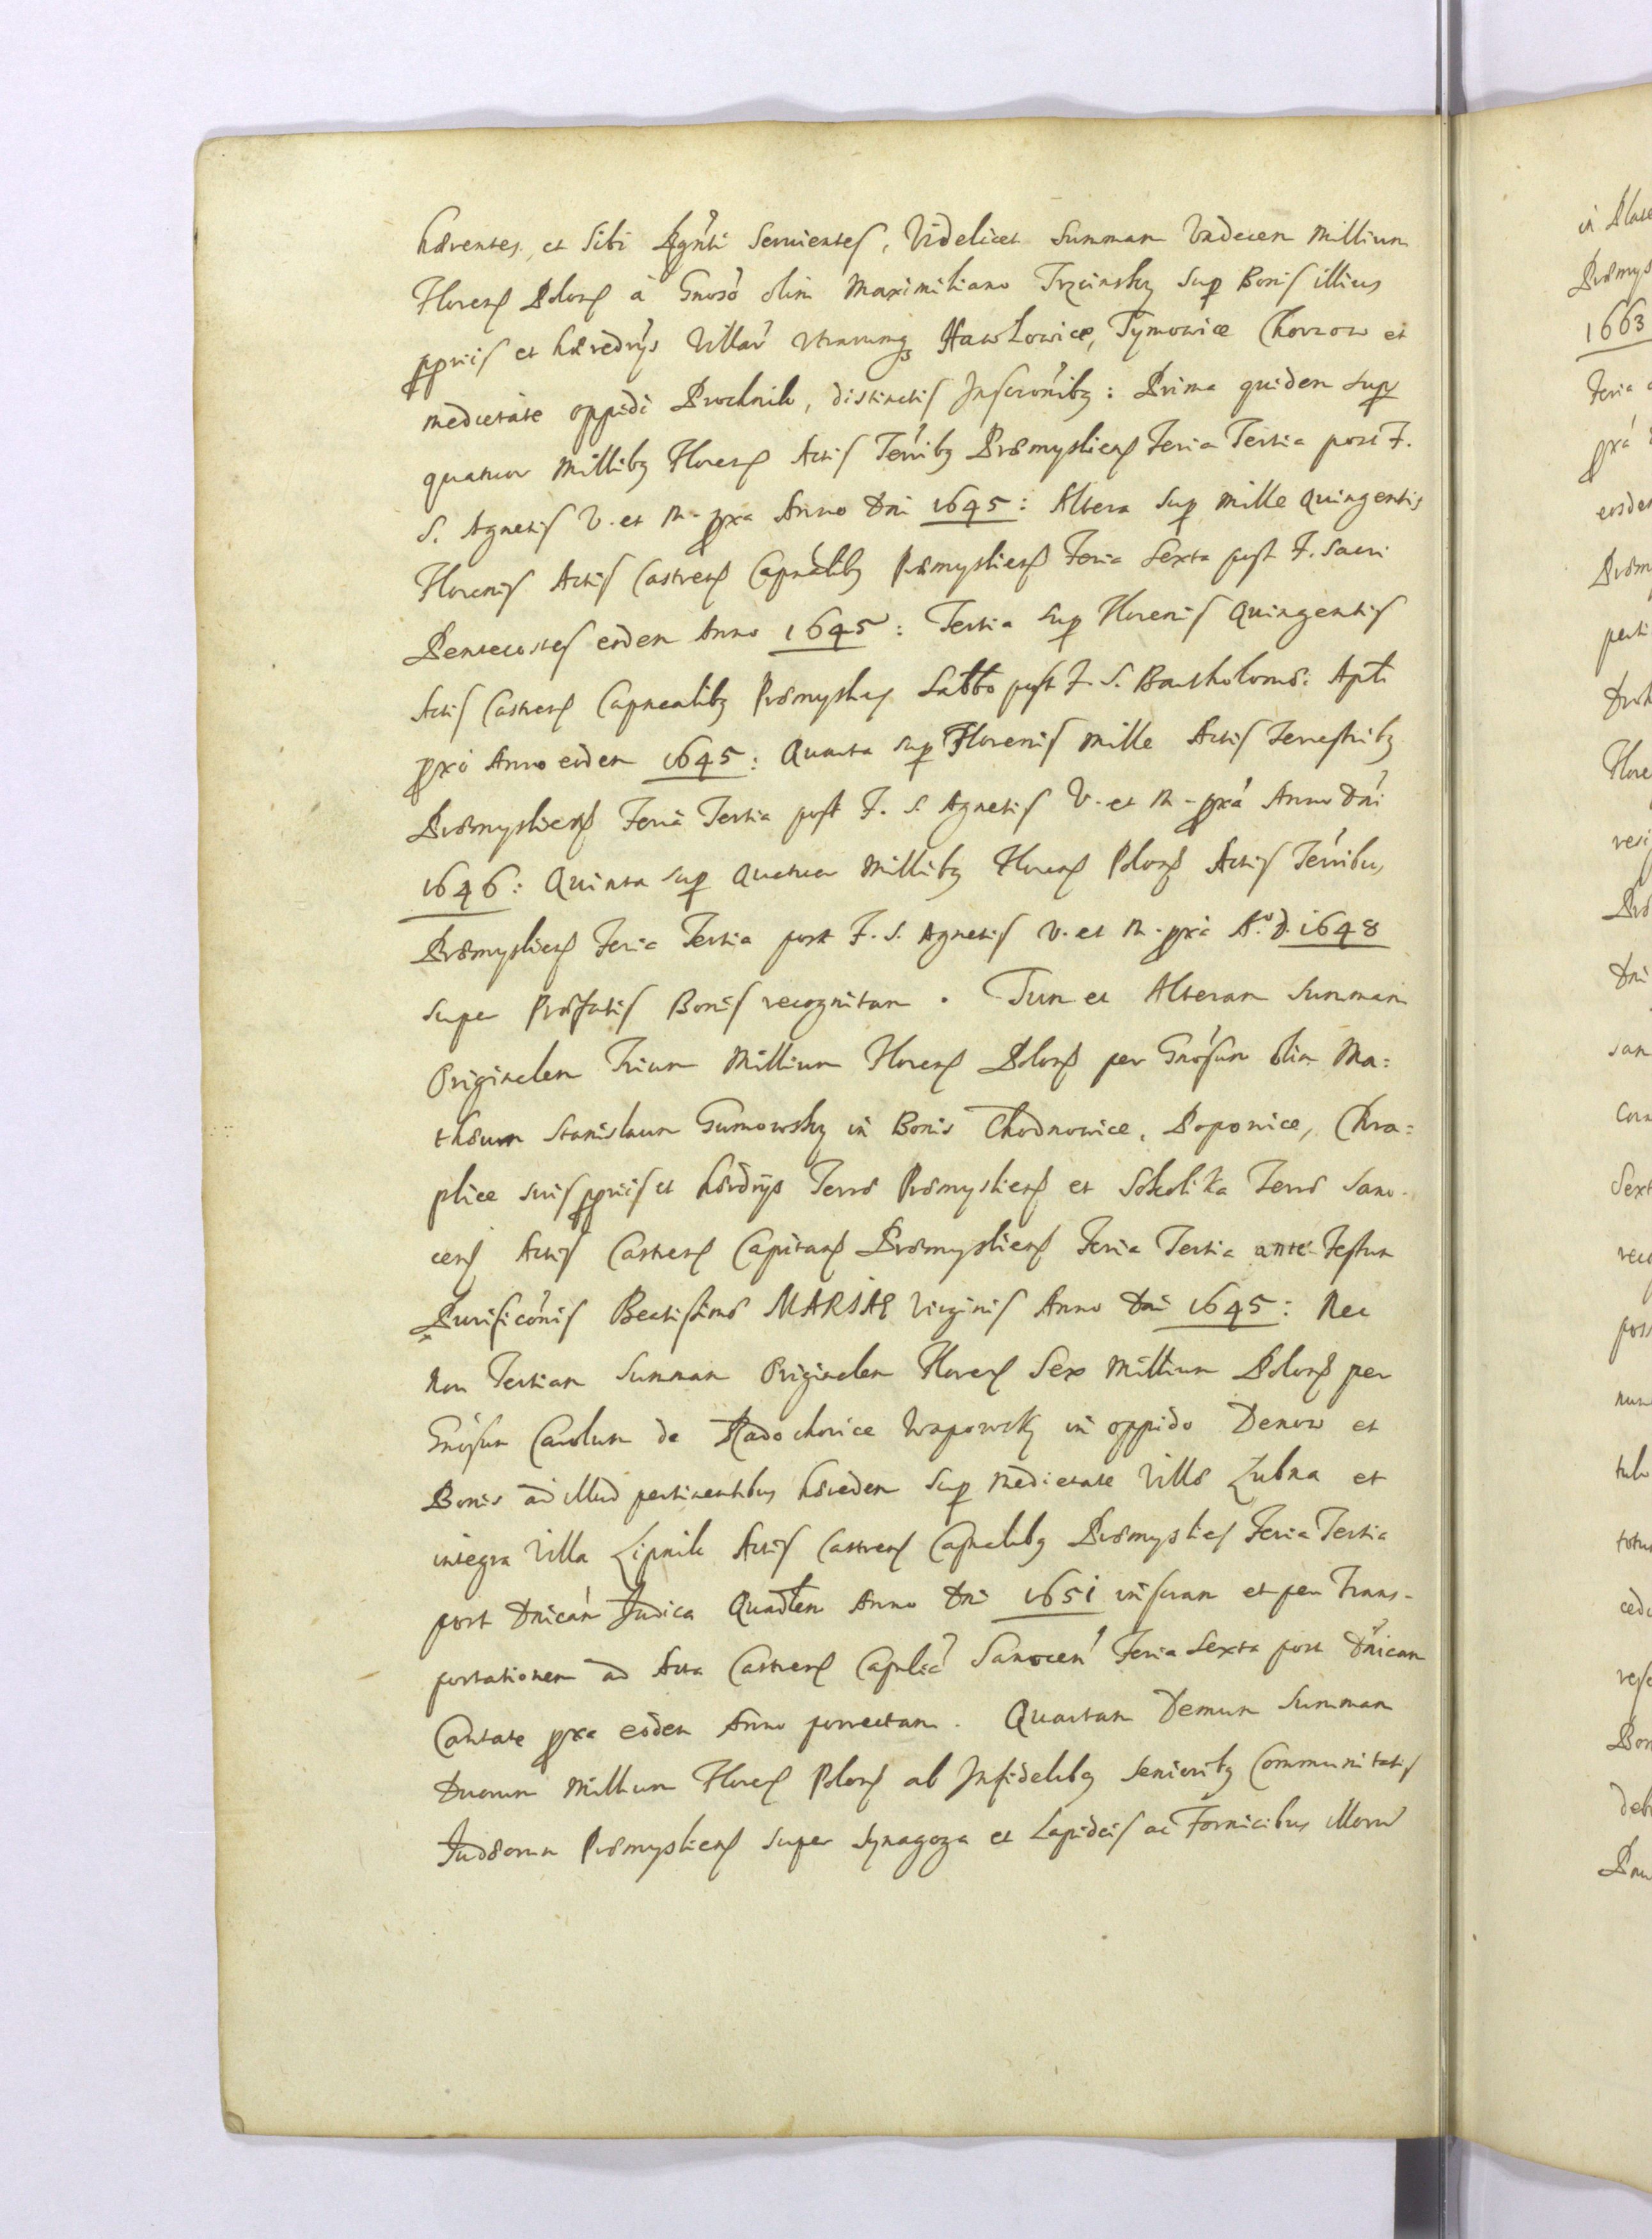 hærentes, et sibi Rgn̄ti seruientes, Videlicet Summam Vndecem Millium
Floren Polon à Gnoso olim Maximiliano Trzcinsky sup Bonis illius
pprijs et hæredrijs Villar Vtrarumq Hawlowice, Tymowice Chorzow et
medietate oppidi Prochnik, distinctis Inscronibq: Prima quidem sup
quatuor Millibq Floren Actis Terribq Præmyslien Feria Tertia post F.
S. Agnetis V. et M. pxa Anno Dni 1645: Altera sup mille quingentis
Florenis Actis Castren Capnealibq Præmyslien Feria Sexta post F. Sacri
Pentecostes eodem Anno 1645: Tertia sup Florenis Quingentis
Actis Castren Capnealibq Præmyslien Sabbo post F. S. Bartholomæi Apli
pxo Anno eodem 1645: Quarta sup Florenis Mille Actis Terrestribq
Præmyslien Feria Tertia post F. S. Agnetis V. et M. pxa Anno Dni
1646: Quinta sup Quatuor Millibq Floren Polon Actis Terribus
Præmyslien Feria Tertia post F. S. Agnetis V. et M. pxa Ao. D. 1648
super Præfatis Bonis recognitam. Tum et Alteram Summam
Originalem Trium Millium Floren Polon per Gnosum olim Ma:
thæum Stanislaum Gumowsky in Bonis Chodnowice, Popowice, Chra:
plice suis pprijs et hæredrijs Terræ Præmyslien et Sokolika Terræ Sano-
cen Actis Castren Capitan Præmyslien Feria Tertia ante Festum
Purificonis Beatissimæ MARIAE Virginis Anno Dni 1645: Nec
non Tertiam Summam Originalem Floren Sex Millium Polon per
Gnosum Carolum de Radochonice Wapowsky in oppido Denow et
Bonis ad illud pertinentibus hæredem sup medietate Villæ Lubna et
integra Villa Lipnik Actis Castren Capnealibq Præmyslien Feria Tertia
post Dnicam Judica Quadlem Anno Dni 1651 inscram et per Trans-
portationem ad Acta Castren Capnlia Sanocen Feria Sexta post Dnicam
Cantate pxa eodem Anno porrectam. Quartam Demum Summam
Duorum Millium Floren Polon ab Infidelibq Senioribq Communitatis
Judæorum Præmyslien super Synagoga et Lapideis ac Fornicibus illorum
1663